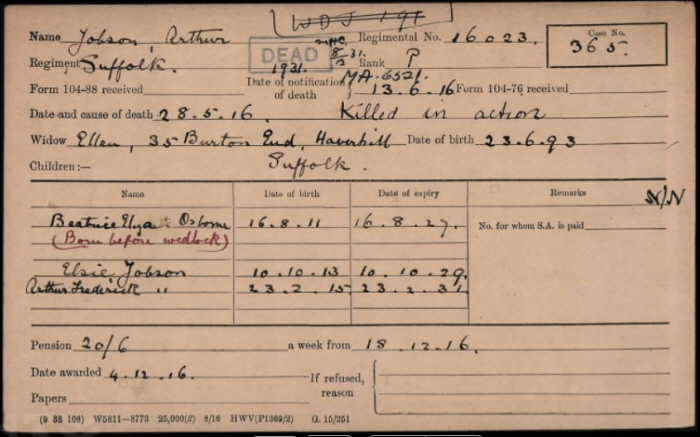 WDJ 191
Name Jobson, Arthur Regimental No. 16023. Case No. 365.
DEAD 1931.
Regiment Suffolk. Rank P
MA.6521.
Form 104-88 received Date of notification of death 13.6.16 Form 104-76 received
Date and cause of death 28.5.16. Killed in action
Widow Ellen, 35 Burton End, Haverhill Date of birth 23.6.93
Children:— Suffolk.
Name Date of birth Date of expiry Remarks N/N
Beatrice Elyza Osborne 16.8.11 16.8.27. No. for whom S.A. is paid
(Born before wedlock)
Elsie Jobson 10.10.13 10.10.29.
Arthur Frederick " 23.2.15 23.2.31
Pension 20/6 a week from 18.12.16.
Date awarded 4.12.16. If refused, reason
Papers
(9 38 108) W5811—8773 25,000(2) 8/16 HWV(P1369/2) G. 15/251